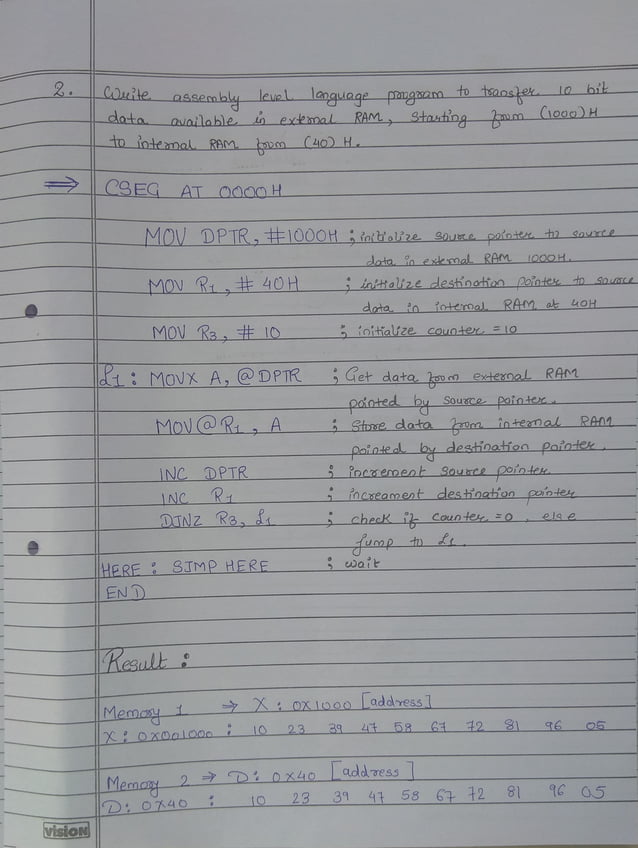 2. Write assembly level language program to transfer 10 bit
data available in external RAM, starting from (1000)H
to internal RAM from (40) H.
⇒ CSEG AT 0000H
MOV DPTR, #1000H ; initialize source pointer to source
data in external RAM 1000H.
MOV R1, # 40H ; initialize destination pointer to source
data in internal RAM at 40H
MOV R3, # 10 ; initialize counter = 10
L1 : MOVX A, @DPTR ; Get data from external RAM
pointed by source pointer.
MOV @R1, A ; Store data from internal RAM
pointed by destination pointer.
INC DPTR ; increment source pointer
INC R1 ; increament destination pointer
DJNZ R3, L1 ; check if counter = 0, else
jump to L1.
HERE : SJMP HERE ; wait
END
Result :
Memory 1 → X : 0X1000 [address]
X : 0X001000 : 10 23 39 47 58 67 72 81 96 05
Memory 2 ⇒ D : 0X40 [address]
D : 0X40 : 10 23 39 47 58 67 72 81 96 05
vision